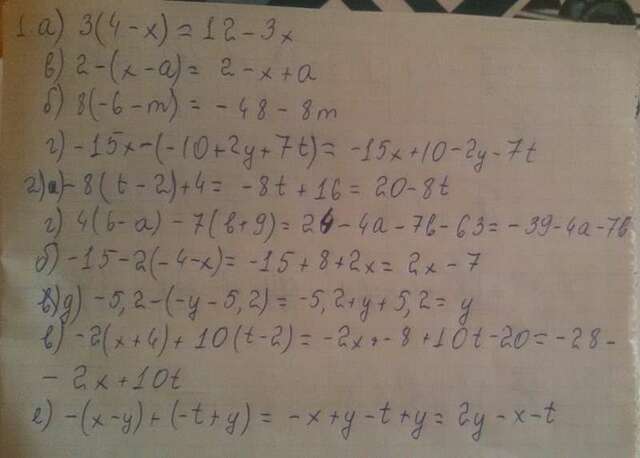 1. а) 3(4-x) = 12-3x
в) 2-(x-a) = 2-x+a
б) 8(-6-m) = -48-8m
г) -15x-(-10+2y+7t) = -15x+10-2y-7t
2)а) -8(t-2)+4 = -8t+16 = 20-8t
г) 4(6-a)-7(в+9) = 24-4a-7в-63 = -39-4a-7в
б) -15-2(-4-x) = -15+8+2x = 2x-7
д) -5,2-(-y-5,2) = -5,2+y+5,2 = y
в) -2(x+4)+10(t-2) = -2x+-8+10t-20 = -28-
-2x+10t
е) -(x-y)+(-t+y) = -x+y-t+y = 2y-x-t